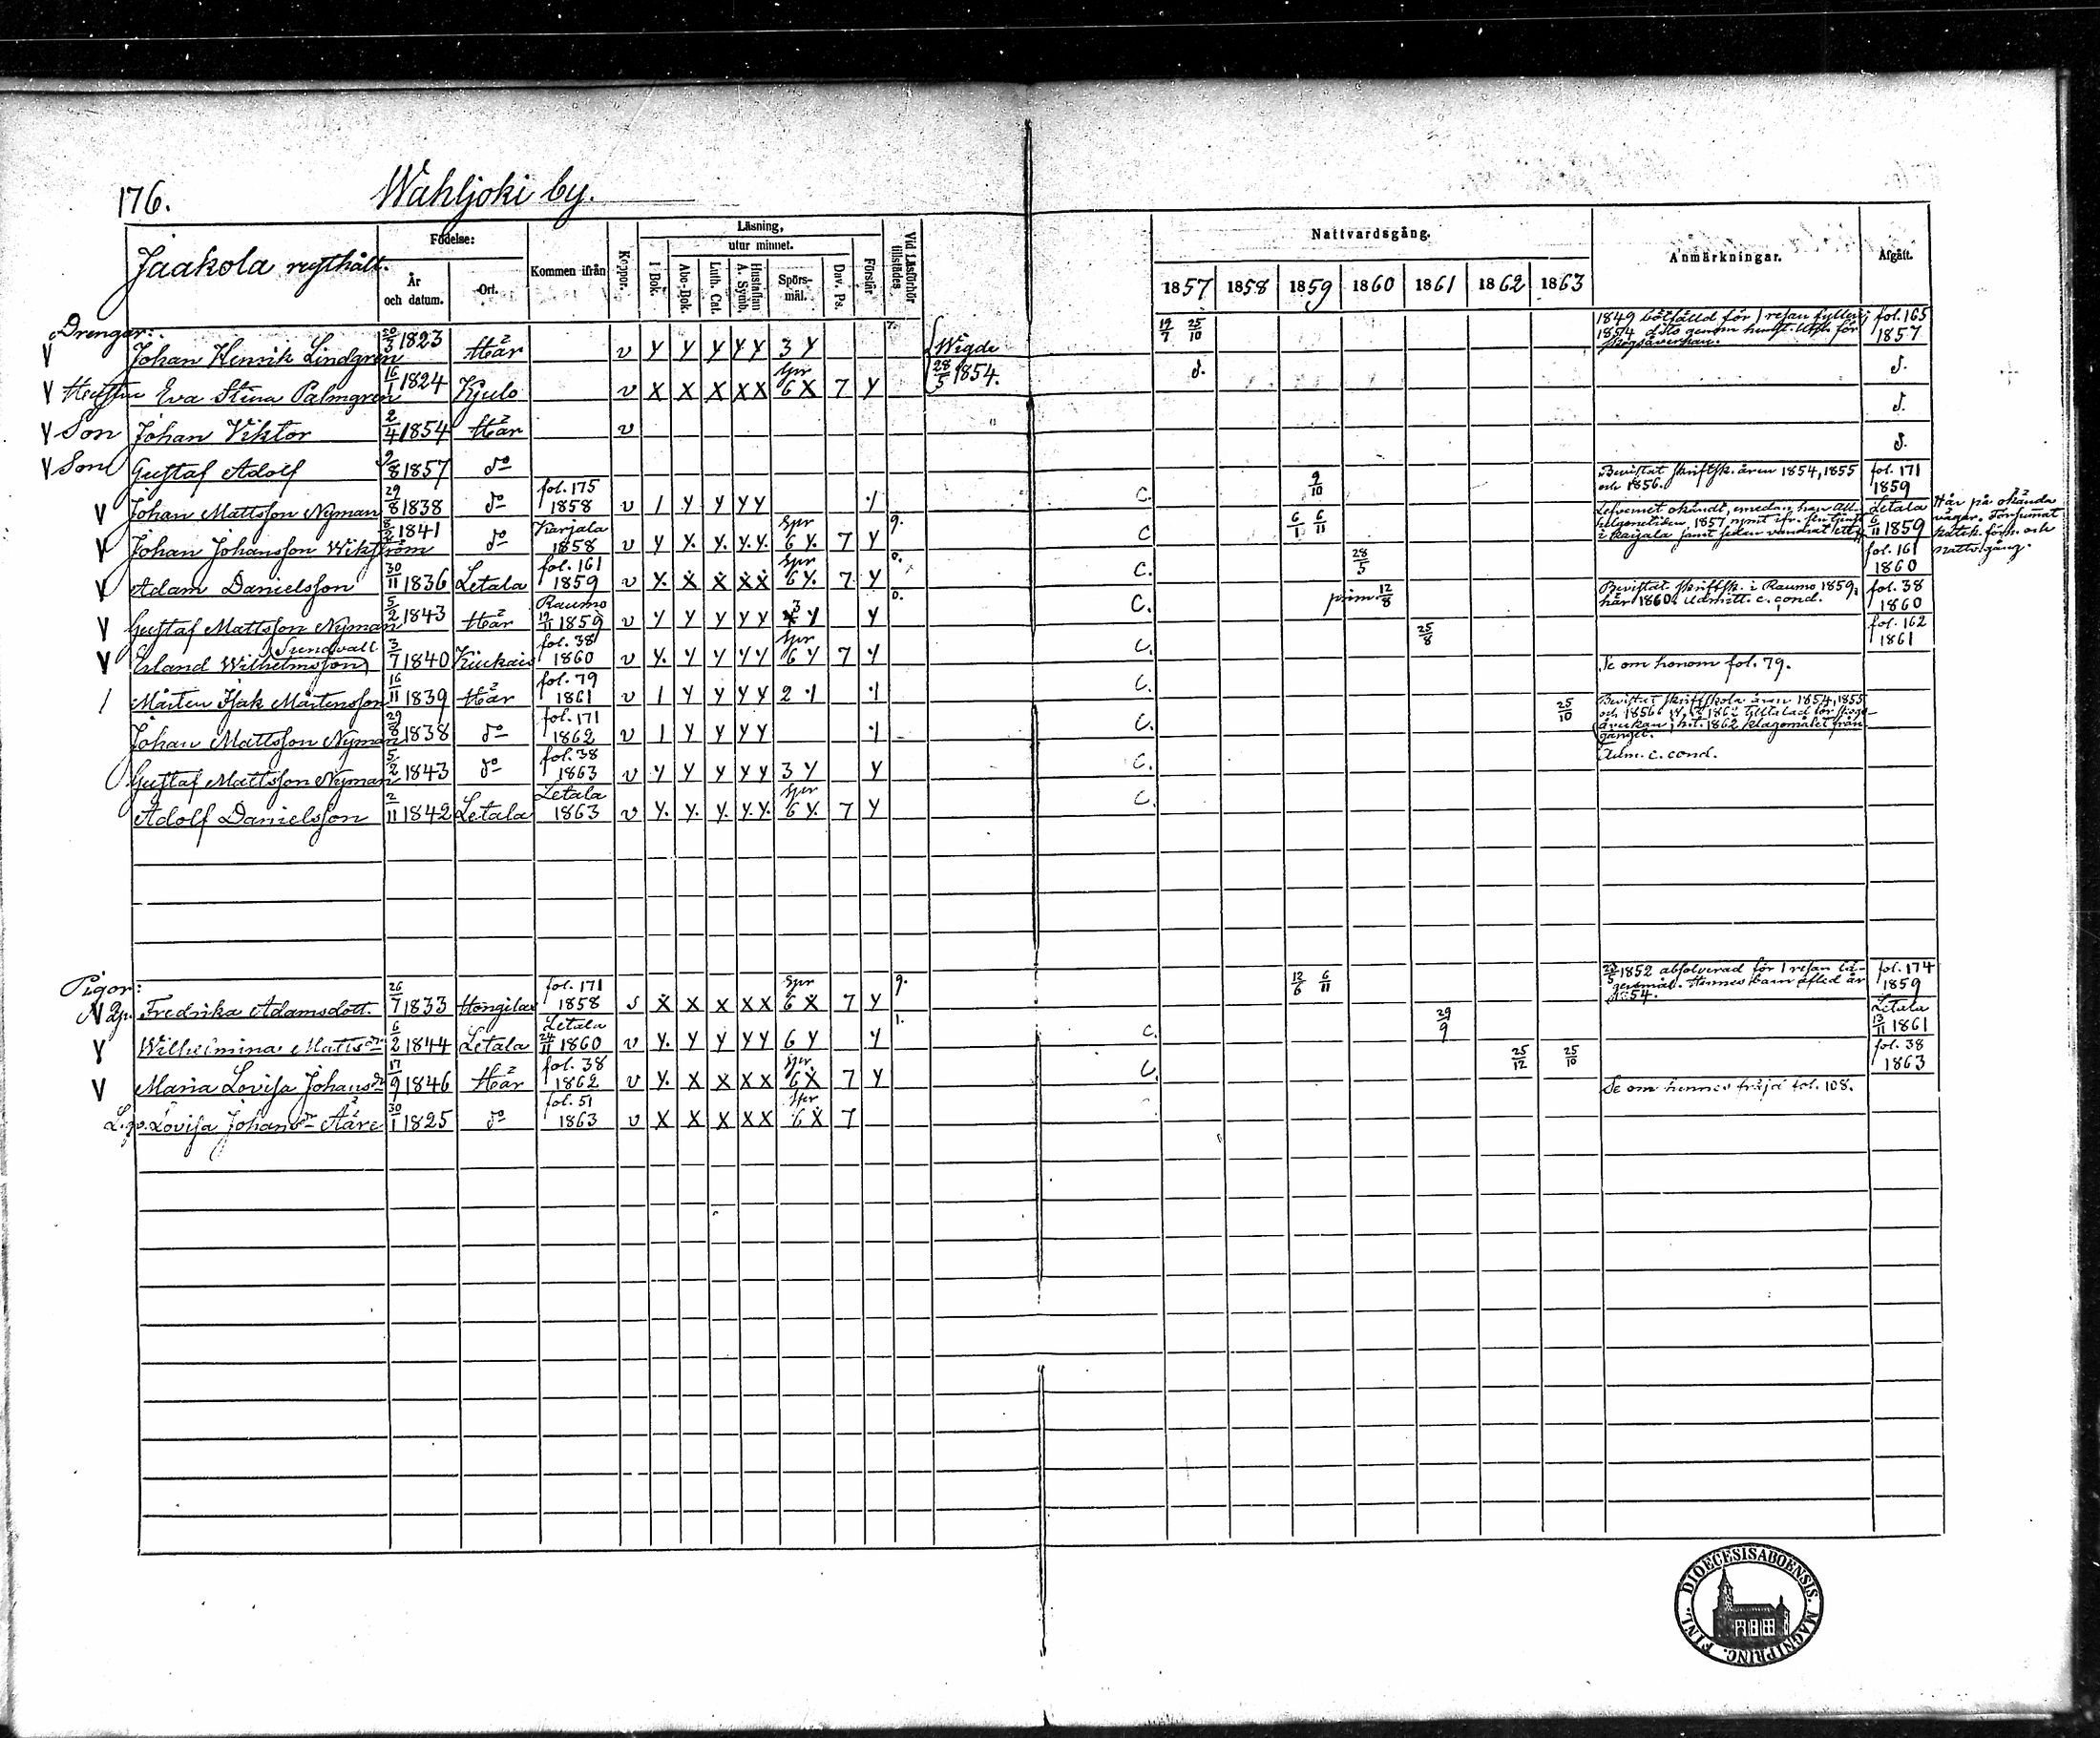 176. Wahljoki by.
Jaakola rusthåll.
Födelse: År och datum. Ort. Kommen ifrån Koppor. Läsning, I Bok. utur minnet. Abc-Bok. Luth. Cat. Hustaflan A. Symb. Spörsmål. Dav. Ps. Förstår Vid Läsförhör tillstädes Nattvardsgång. 1857 1858 1859 1860 1861 1862 1863 Anmärkningar. Afgått.
Drengar:
V Johan Henrik Lindgren 1823 Här v y y y y y 3 y 7. Wigde 19/7 25/10 1849 bötfälld för 1 resan fylleri; 1854 dito genom för skogsåverkan. fol. 165 1857
V Hustru Eva Stina Palmgren 16/1 1824 Kjulo v X X X X X Spr 6 X 7 y 28/5 1854. d. d.
V Son Johan Viktor 2/4 1854 Här v d.
V Son Gustaf Adolf 9/8 1857 do d.
V Johan Mattsson Nyman 29/8 1838 do fol. 175 1858 v 1 y y y y 1 C. 9/10 Bevistat skriftsk. åren 1854, 1855 och 1856. fol. 171 1859
V Johan Johansson Wikström 8/2 1841 do Karjala 1858 v y y. y. y. y. Spr 6 y. 7 y 9. C 6/1 6/11 Lefvernet okändt, emedan han 1857 i Karjala samt sedan vandrat Letala 6/11 1859 Här på okända vägar. Försummat katek. förh. och nattv. gång.
V Adam Danielsson 30/11 1836 Letala fol. 161 1859 v y. X X X X Spr 6 y. 7 y 0. C. 28/5 fol. 161 1860
V Gustaf Mattsson Nyman 5/2 1843 Här Raumo 19/11 1859 v y y y y y 3 y y 0. C. prim. 12/8 Bevistat skriftsk. i Raumo 1859, här 1860. Admitt. c. cond. fol. 38 1860
V Erland Wilhelmsson Sundvall 3/7 1840 Kiukais fol. 38 1860 v y. y y y y Spr 6 y 7 y C. 25/8 fol. 162 1861
1 Mårten Isak Mårtensson 16/11 1839 Här fol. 79 1861 v 1 y y y y 2 1 1 C. Se om honom fol. 79.
Johan Mattsson Nyman 29/8 1838 do fol. 171 1862 v 1 y y y y 1 C. 25/10 Bevistat skriftskola åren 1854, 1855 och 1856. 1862 tilltalad för skogsåverkan; 1862 klagomålet
Gustaf Mattsson Nyman 5/2 1843 do fol. 38 1863 v y y y y y 3 y y C. Adm. c. cond.
Adolf Danielsson 2/11 1842 Letala Letala 1863 v y. y. y. y. y. Spr 6 y. 7 y C.
Pigor:
V Fredrika Adamsdott. 26/7 1833 fol. 171 1858 s X X X X X Spr 6 X 7 y 9. 12/6 6/11 23/5 1852 absolverad för 1 resan lägersmål. Hennes barn afled år 1854. fol. 174 1859
V Wilhelmina Mattsdr 6/2 1844 Letala Letala 24/11 1860 v y. y y y y 6 y y 1. C. 29/9 Letala 13/11 1861
V Maria Lovisa Johansdr 17/9 1846 Här fol. 38 1862 v y. X X X X Spr 6 X 7 y C. 25/12 25/10 fol. 38 1863
Lovisa Johansdr 30/1 1825 do fol. 51 1863 v X X X X X Spr 6 X 7 Se om hennes frejd fol. 108.
DIOECESIS ABOENSIS. MAGNI PRINC. FINL.